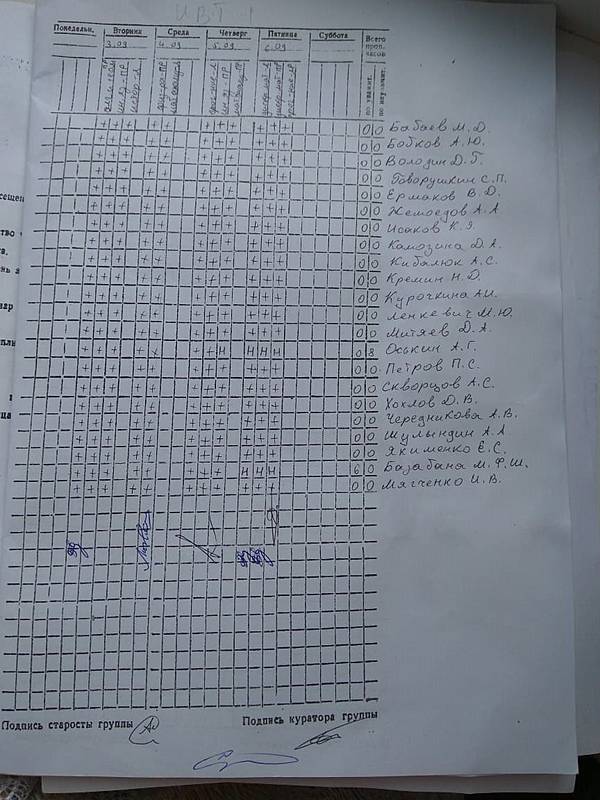 ИВТ 1
Понедельн. Вторник Среда Четверг Пятница Суббота Всего проп. часов
3.09 4.09 5.09 6.09
по уважит. по неуважит.
+ + + + + + + + + + + 0 0 Бабаев М. Д.
+ + + + + + + + + + + 0 0 Бобков А. Ю.
+ + + + + + + + + + + 0 0 Володин Д. Г.
+ + + + + + + + + + + 0 0 Говорушкин С. П.
+ + + + + + + + + + + 0 0 Ермаков В. Д.
+ + + + + + + + + + + 0 0 Жемоедов А. А
+ + + + + + + + + + + 0 0 Исаков К. Э.
+ + + + + + + + + + + 0 0 Камозина Д. А.
+ + + + + + + + + + + 0 0 Кибалюк А. С.
+ + + + + + + + + + + 0 0 Кремин Н. Д.
+ + + + + + + + + + + 0 0 Курочкина А.И.
+ + + + + + + + + + + 0 0 Ленкевич М. Ю.
+ + + + + + + + + + + 0 0 Митяев Д. А.
+ + + + + + + Н Н Н Н 0 8 Оськин А. Г.
+ + + + + + + + + + + 0 0 Петров П. С.
+ + + + + + + + + + + 0 0 Скворцов А. С.
+ + + + + + + + + + + 0 0 Хохлов Д. В.
+ + + + + + + + + + + 0 0 Чередникова А. В.
+ + + + + + + + + + + 0 0 Шулындин А. А
+ + + + + + + + + + + 0 0 Якименко Е. С.
+ + + + + + + + Н Н Н 6 0 Базабана М. Ф. Ш.
+ + + + + + + + + + + 0 0 Мягченко И. В.
Подпись старосты группы
Подпись куратора группы